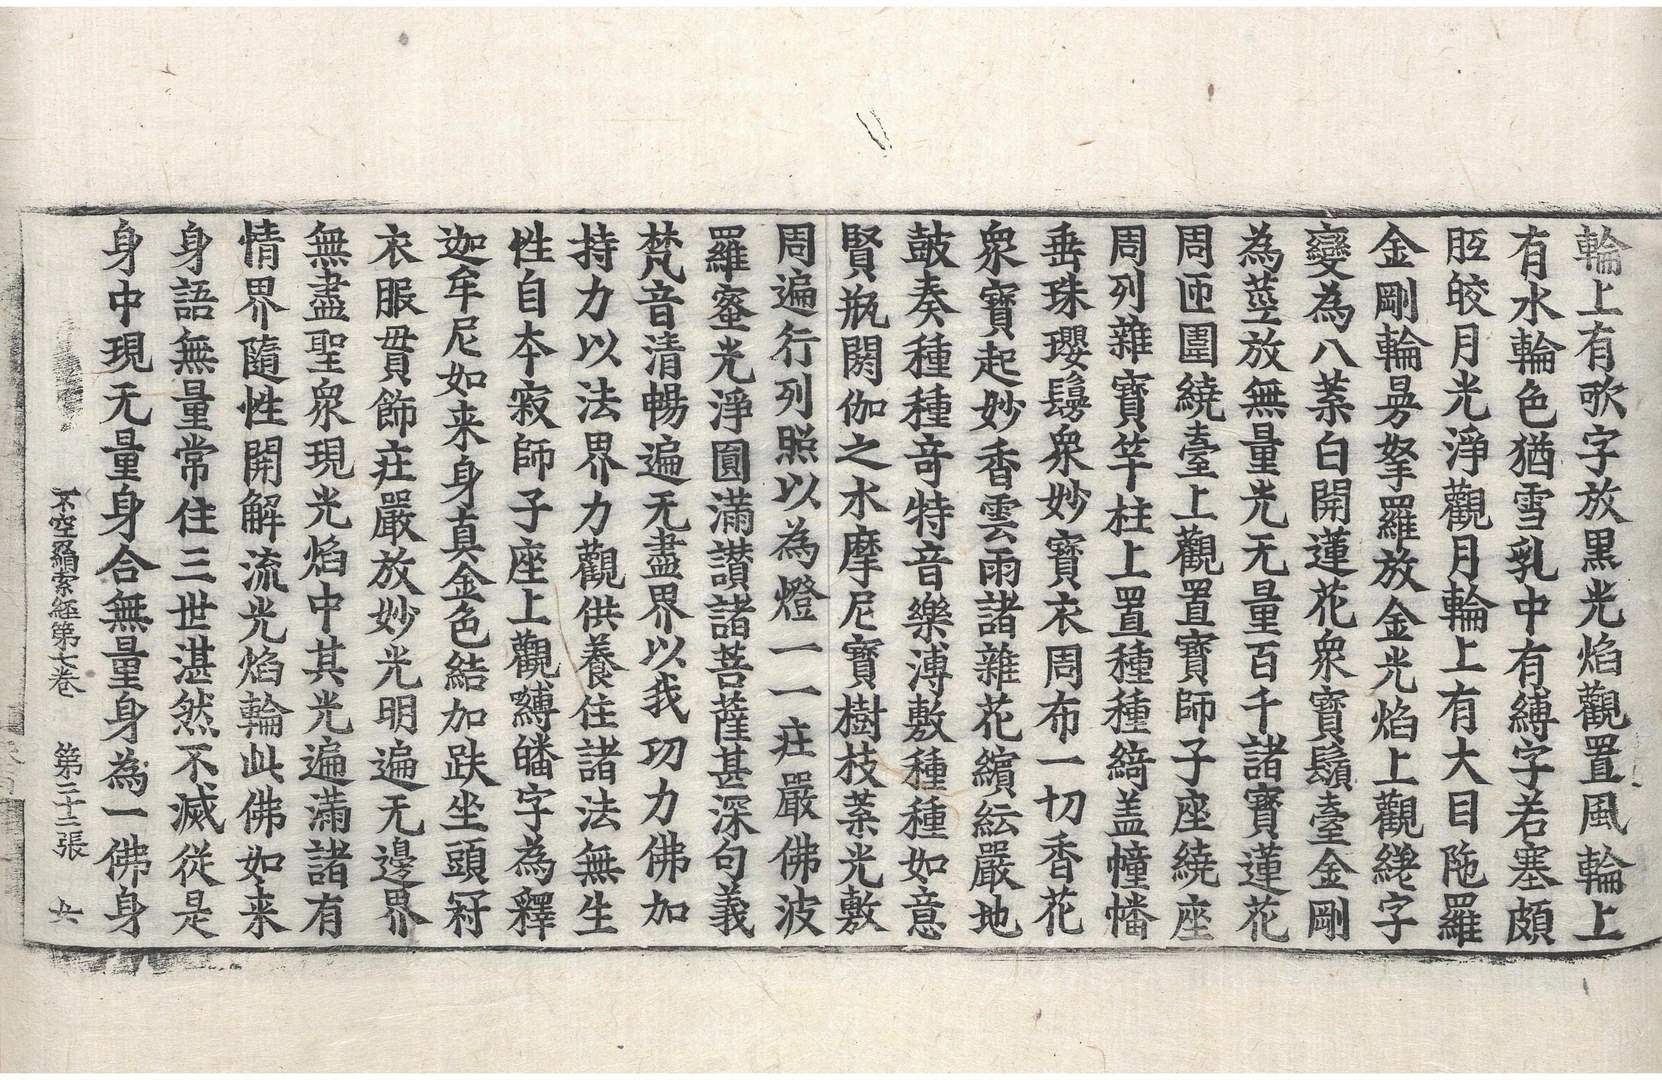 輪上有㰤字放黑光焰觀置風輪上
有水輪色猶雪乳中有縛字若塞頗
胝皎月光淨觀月輪上有大目陁羅
金剛輪㫄拏羅放金光焰上觀字
變為八葉白開蓮花眾寶鬚臺金剛
為莖放無量光无量百千諸寶蓮花
周匝圍繞臺上觀置寶師子座繞座
周列雜寶竿柱上置種種綺盖幢幡
垂珠瓔鬘衆妙寶衣周布一切香花
衆寶起妙香雲雨諸雜花繽紜嚴地
鼓奏種種竒特音樂溥敷種種如意
賢瓶閼伽之水摩尼寶樹枝葉光敷
周遍行列照以為燈一一庄嚴佛波
羅蜜光淨圎滿讃諸菩薩甚深句義
梵音清暢遍无盡界以我功力佛加
持力以法界力觀供養住諸法無生
性自本寂師子座上觀嚩皤字為釋
迦牟尼如来身真金色結加趺坐頭冠
衣服毋貫飾庄嚴放妙光明遍无邊界
無盡聖衆現光焰中其光遍滿諸有
情界隨性開解流光焰輪此佛如来
身語無量常住三世湛然不滅從是
身中現无量身合無量身為一佛身
不空羂索経第七卷 第二十三張